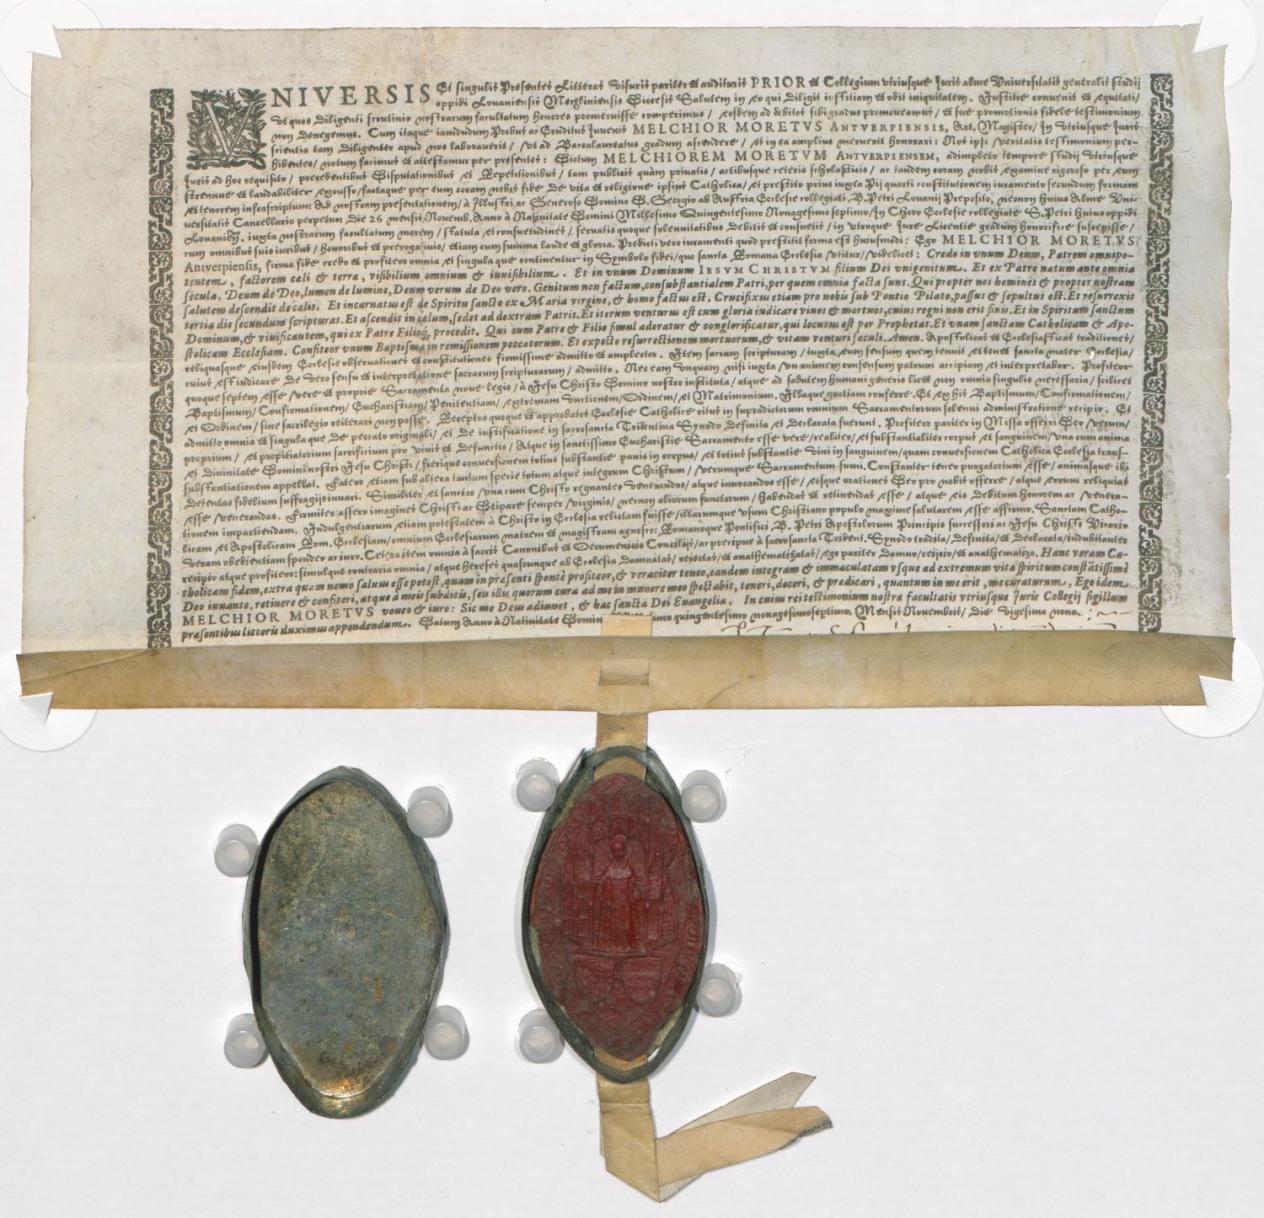 VNIVERSIS Et singulis Presentes Litteras visuris pariter et audituris PRIOR et Collegium vtriusque Iuris alme Vniversitatis generalis studij
oppidi Lovaniensis Mechliniensis Diocesis Salutem in eo qui diligit iustitiam et odit iniquitatem. Iustitie convenit et equitati/
vt quos diligenti scrutinio nostrarum facultatum honores promeruisse comperimus / eosdem ad debitos sibi gradus promoveamus / et sue promotionis fidele testimonium
non denegemus. Cum itaque iamdudum Probus ac Eruditus Iuvenis MELCHIOR MORETVS ANTVERPIENSIS, Art. Magister / In vtriusque Iuris
scientia tam diligenter apud nos laboraverit / vt ad Baccalaureatus gradum ascendere / et in ea amplius meruerit honorari: Nos ipsi / veritatis testimonium per-
hibentes / notum facimus et attestamur per presentes: Dictum MELCHIOREM MORETVM ANTVERPIENSEM, adimpleto tempore studij vtriusque
Iuris ad hoc requisito / precedentibus Disputationibus et Repetitionibus / tam publicis quàm privatis / actibusque ceteris scholasticis / ac tandem coram nobis examine rigoroso per eum
strenue et laudabiliter excusso / factaque per eum coram nobis fide de vita et religione ipsius Catholica / et prestito prius iuxta Pij quarti constitutionem iuramento secundum formam
et tenorem infrascriptum: Ad nostram presentationem / a Illustri ac Generoso Domino D. Georgio ab Austria Ecclesie collegiate D. Petri Lovanij Preposito, necnon huius Alme Vni-
versitatis Cancellario perpetuo Die 26 mensis Novemb. Anno à Nativitate Domini Millesimo Quingentesimo Nonagesimo septimo / In Choro Ecclesie collegiate S. Petri huius oppidi
Lovaniens. iuxta nostrarum facultatum morem / statuta et consuetudines / servatis quoque solennitatibus debitis et consuetis / in vtroque Iure Licentie gradum honorifice suscepisse /
cum omnibus suis iuribus / honoribus et prerogativis / etiam cum summa laude et gloria. Predicti vero iuramenti quod prestitit forma est huiusmodi: Ego MELCHIOR MORETVS
Antverpiensis, firma fide credo et profiteor omnia et singula que continentur in Symbolo fidei / quo sancta Romana Ecclesia vtitur / videlicet: Credo in vnum Deum, Patrem omnipo-
tentem, factorem cæli & terra, visibilium omnium & invisibilium. Et in vnum Dominum IESVM CHRISTVM filium Dei vnigenitum. Et ex Patre natum ante omnia
secula. Deum de Deo, lumen de lumine, Deum verum de Deo vero. Genitum non factum, consubstantialem Patri, per quem omnia facta sunt. Qui propter nos homines & propter nostram
salutem descendit de cælis. Et incarnatus est de Spiritu sancto ex Maria virgine, & homo factus est. Crucifixus etiam pro nobis sub Pontio Pilato, passus & sepultus est. Et resurrexit
tertia die secundum scripturas. Et ascendit in cælum, sedet ad dextram Patris. Et iterum venturus est cum gloria iudicare vivos & mortuos, cuius regni non erit finis. Et in Spiritum sanctum
Dominum, & vivificantem, qui ex Patre Filioq; procedit. Qui cum Patre & Filio simul adoratur & conglorificatur, qui locutus est per Prophetas. Et vnam sanctam Catholicam & Apo-
stolicam Ecclesiam. Confiteor vnum Baptisma in remissionem peccatorum. Et expecto resurrectionem mortuorum, & vitam venturi sæculi. Amen. Apostolicas et Ecclesiasticas traditiones /
reliquasque eiusdem Ecclesie observationes et constitutiones firmissime admitto et amplector. Item sacram scripturam / iuxta eum sensum quem tenuit et tenet sancta mater Ecclesia /
cuius est iudicare de vero sensu et interpretatione sacrarum scripturarum / admitto. Nec eam vnquam nisi iuxta vnanimem consensum patrum accipiam et interpretabor. Profiteor
quoque septem esse vere et proprie Sacramenta nove legis / à Iesu Christo Domino nostro instituta / atque ad salutem humani generis licet non omnia singulis necessaria / scilicet
Baptismum / Confirmationem / Eucharistiam / Penitentiam / extremam vnctionem / Ordinem / et Matrimonium. Illaque gratiam conferre. Et ex his Baptismum / Confirmationem /
et Ordinem / sine sacrilegio reiterari non posse. Receptos quoque et approbatos Ecclesie Catholice ritus in supradictorum omnium Sacramentorum solenni administratione recipio. Et
admitto omnia et singula que de peccato originali / et de iustificatione in sacrosancta Tridentina Synodo definita et declarata fuerunt. Profiteor pariter in Missa offerri Deo verum /
proprium / et propitiatorium sacrificium pro vivis et defunctis / Atque in sanctissimo Eucharistie Sacramento esse vere / realiter / et substantialiter corpus et sanguinem / vna cum anima
et divinitate Domini nostri Iesu Christi / fierique conversionem totius substantie panis in corpus / et totius substantie vini in sanguinem / quam conversionem Catholica Ecclesia trans-
substantiationem appellat. Fateor etiam sub altera tantum specie totum atque integrum Christum / verumque Sacramentum sumi. Constanter teneo purgatorium esse / animasque ibi
detentas fidelium suffragijs iuvari. Similiter et sanctos / vna cum Christo regnantes venerandos / atque invocandos esse / eosque orationes Deo pro nobis offerre / atque eorum reliquias
esse venerandas. Firmiter assero imagines Christi ac Deipare semper virginis / necnon aliorum sanctorum / habendas et retinendas esse / atque eis debitum honorem ac venera-
tionem impartiendam. Indulgentiarum etiam potestatem à Christo in Ecclesia relictam fuisse / illarumque vsum Christiano populo maxime salutarem esse affirmo. Sanctam Catho-
licam et Apostolicam Rom. Ecclesiam / omnium Ecclesiarum matrem et magistram agnosco: Romanoque Pontifici B. Petri Apostolorum Principis successori ac Iesu Christi Vicario
veram obedientiam spondeo ac iuro. Cetera item omnia à sacris Canonibus et Oecumenicis Concilijs / ac precipue à sacrosancta Trident. Synodo tradita / definita / et declarata / indubitanter
recipio atque profiteor: simulque contraria omnia / atque Hereses quascunque ab Ecclesia damnatas / reiectas / et anathematizatas / ego pariter damno / reijcio / et anathematizo. Hanc veram Ca-
tholicam fidem, extra quam nemo salvus esse potest, quam in præsenti sponte profiteor, & veraciter teneo, eandem integram & immaculatam vsque ad extremum vitæ spiritum constantissimè
Deo iuvante, retinere & confiteri, atque à meis subditis, seu illis quorum cura ad me in munere meo spectabit, teneri, doceri, & prædicari, quantum in me erit, me curaturum, Ego idem
MELCHIOR MORETVS voveo & iuro: Sic me Deus adiuvet, & hæc sancta Dei Euangelia. In cuius rei testimonium nostræ facultatis vtriusque Iuris Collegij sigillum
præsentibus litteris duximus appendendum. Datum Anno à Nativitate Domin imo quingentesimo nonagesimoseptimo, Mensis Novembris / die vigesima nona.